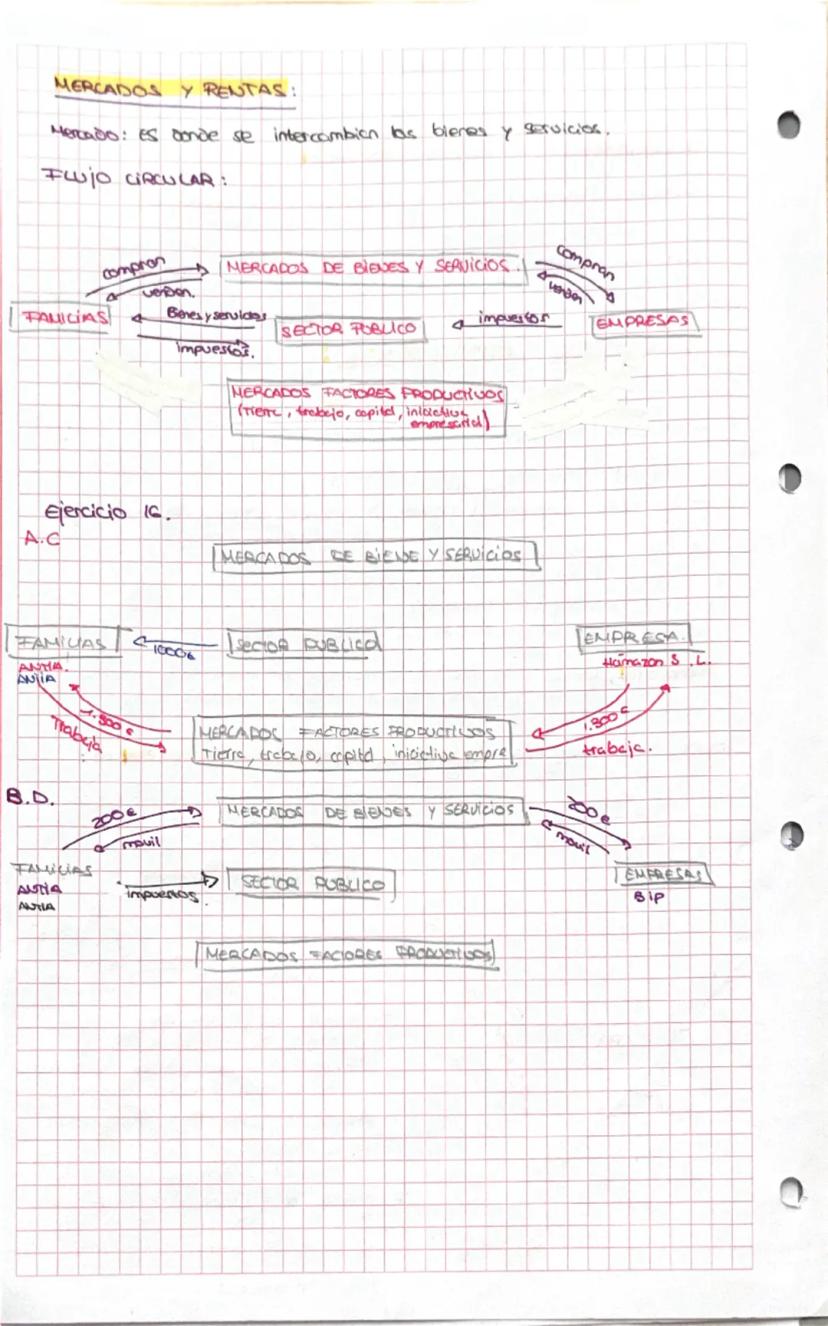 MERCADOS Y RENTAS:
Mercado: es donde se intercambian los bienes y servicios.
FLUJO CIRCULAR:
compran
MERCADOS DE BIENES Y SERVICIOS.
compran
venden.
venden
FAMILIAS
Bienes y servicios
SECTOR PUBLICO
impuestos
EMPRESAS
impuestos.
MERCADOS FACTORES PRODUCTIVOS
(Tierra, trabajo, capital, iniciativa
empresarial)
Ejercicio 16.
A.C
MERCADOS DE BIENE Y SERVICIOS
FAMILIAS
1000€
SECTOR PUBLICO
EMPRESA.
ANTIA.
ANTIA
Hamazon S.L.
1.300€
Trabaja
MERCADOS FACTORES PRODUCTIVOS
Tierra, trabajo, capital, iniciativa empre
1.300€
trabaja.
B.D.
200€
MERCADOS DE BIENES Y SERVICIOS
200€
movil
movil
FAMILIAS
ANTIA
ANTIA
impuestos.
SECTOR PUBLICO
EMPRESAS
BIP
MERCADOS FACTORES PRODUCTIVOS